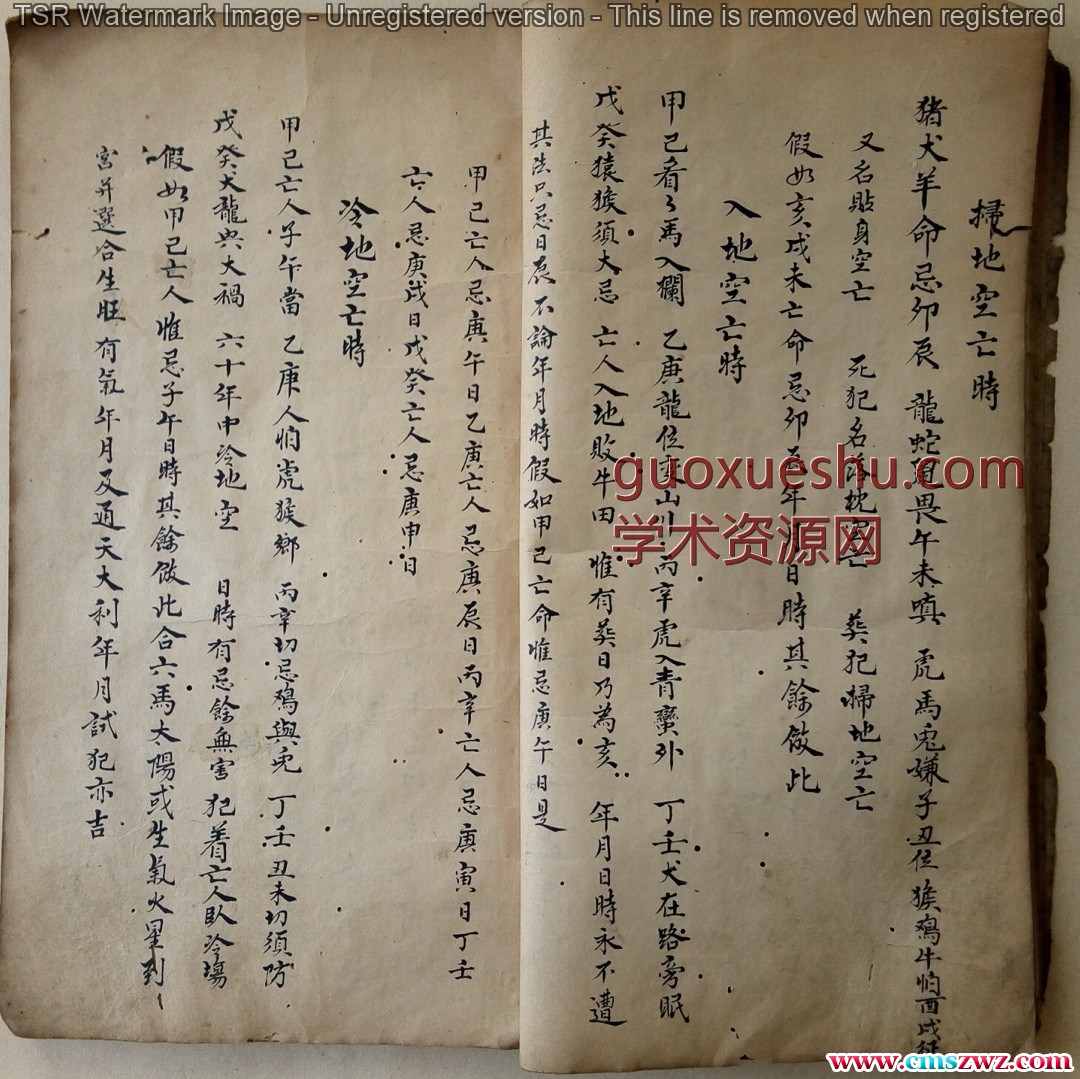 TSR Watermark Image - Unregistered version - This line is removed when registered
掃地空亡時
猪犬羊命忌卯辰 龍蛇鼠畏午未嗔 虎馬兎嫌子丑位 猴鴉牛怕酉戌
又名貼身空亡 死犯名落枕空亡 葬犯掃地空亡
假如亥戌未亡命忌卯辰年月日時其餘倣此
入地空亡時
甲己看々馬入欄 乙庚龍位在山川 丙辛虎入青蠻外 丁壬犬在路旁眠
戊癸猿猴須大忌 亡人入地敗牛田 惟有葬日乃為亥 年月日時永不遭
其法只忌日辰不論年月時假如甲己亡命惟忌庚午日是
甲己亡人忌庚午日乙庚亡人忌庚辰日丙辛亡人忌庚寅日丁壬
亡人忌庚戌日戊癸亡人忌庚申日
冷地空亡時
甲己亡人子午當 乙庚人怕虎猴鄉 丙辛切忌鴉與兎 丁壬丑未切須防
戊癸犬龍與大禍 六十年中冷地空 日時有忌餘無害 犯着亡人臥冷塲
假如甲己亡人惟忌子午日時其餘倣此合六馬太陽或生氣火星到
宮并選合生旺有氣年月及通天大利年月試犯亦吉
guoxueshu.com
学术资源网
www.cmszwz.com